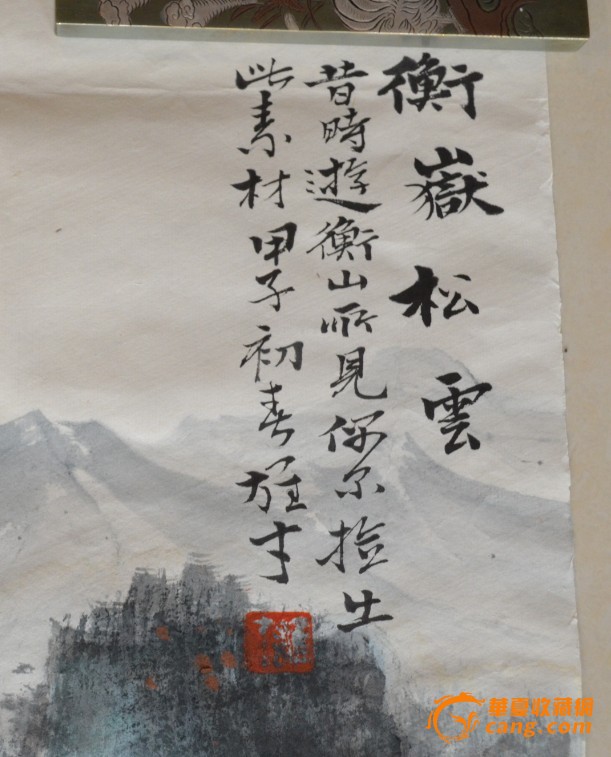 衡嶽松雲
昔時遊衡山所見偶尔撿出
此素材甲子初春雄才
華夏收藏網
cang.com